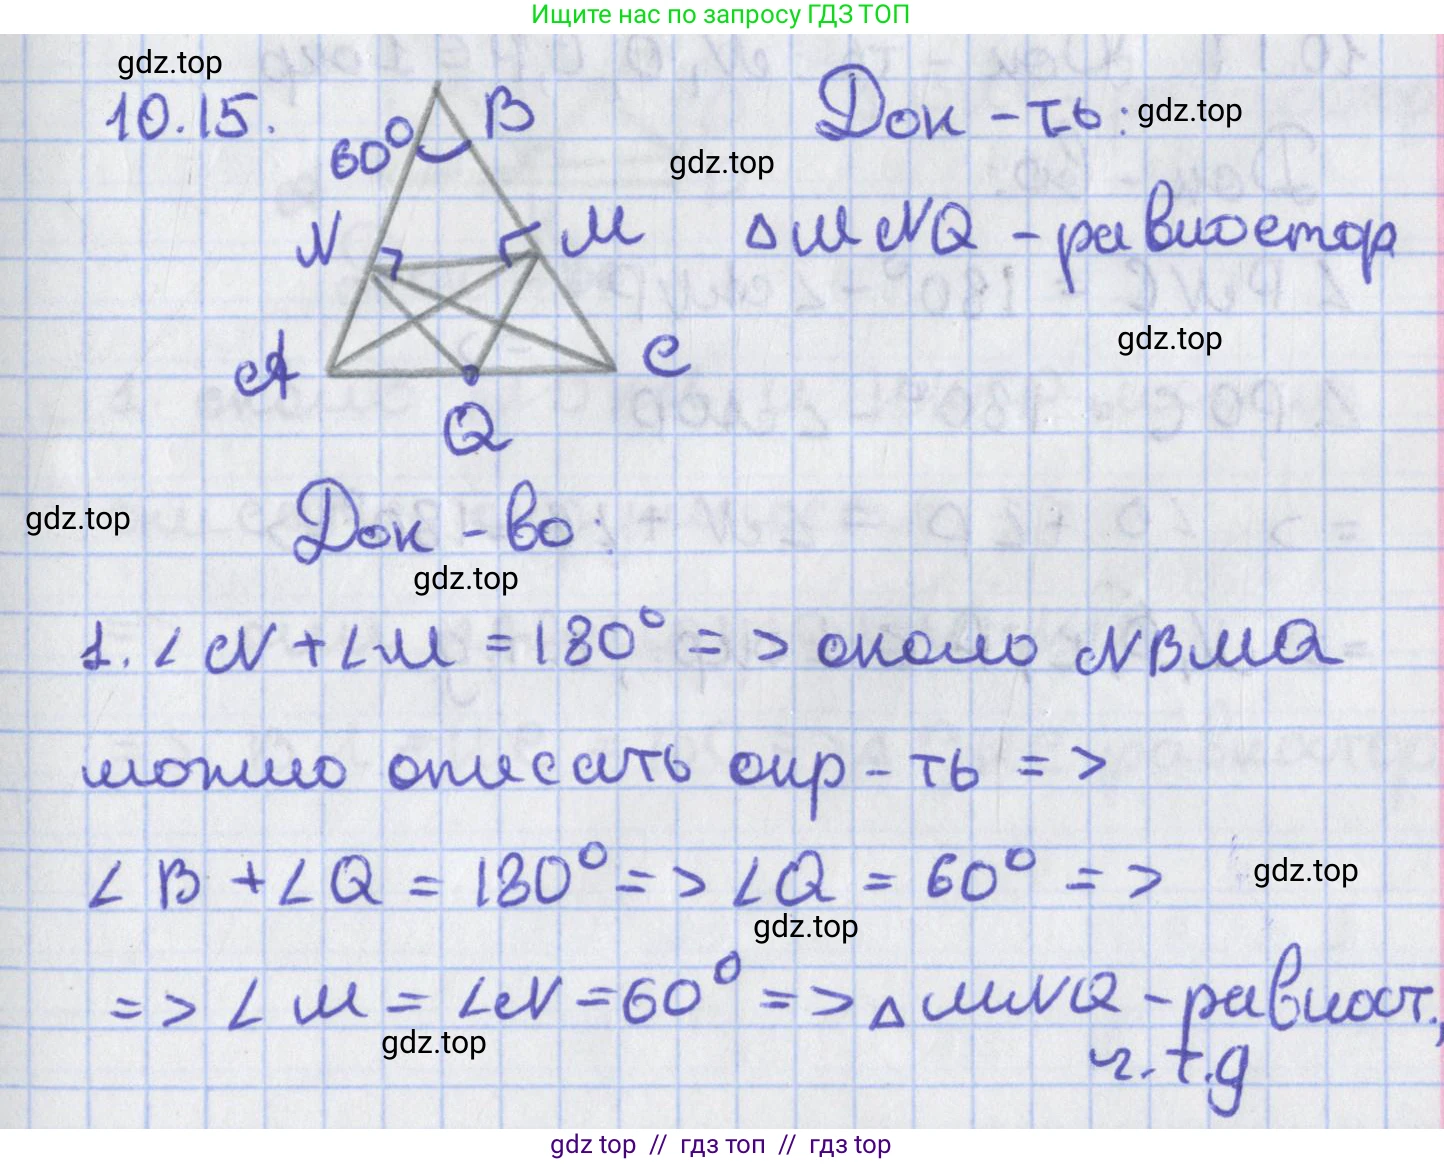 Ищите нас по запросу ГДЗ ТОП
gdz.top
10.15.
60° B
Док-ть: gdz.top
gdz.top
N M
△MNQ - равностор
gdz.top
A C
Q
gdz.top
Док-во:
gdz.top
1. ∠N + ∠M = 180° => около NBMQ
можно описать окр-ть =>
∠B + ∠Q = 180° => ∠Q = 60° =>
gdz.top
gdz.top
=> ∠M = ∠N = 60° => △MNQ - равност.,
gdz.top
ч.т.д
gdz top // гдз топ // гдз top